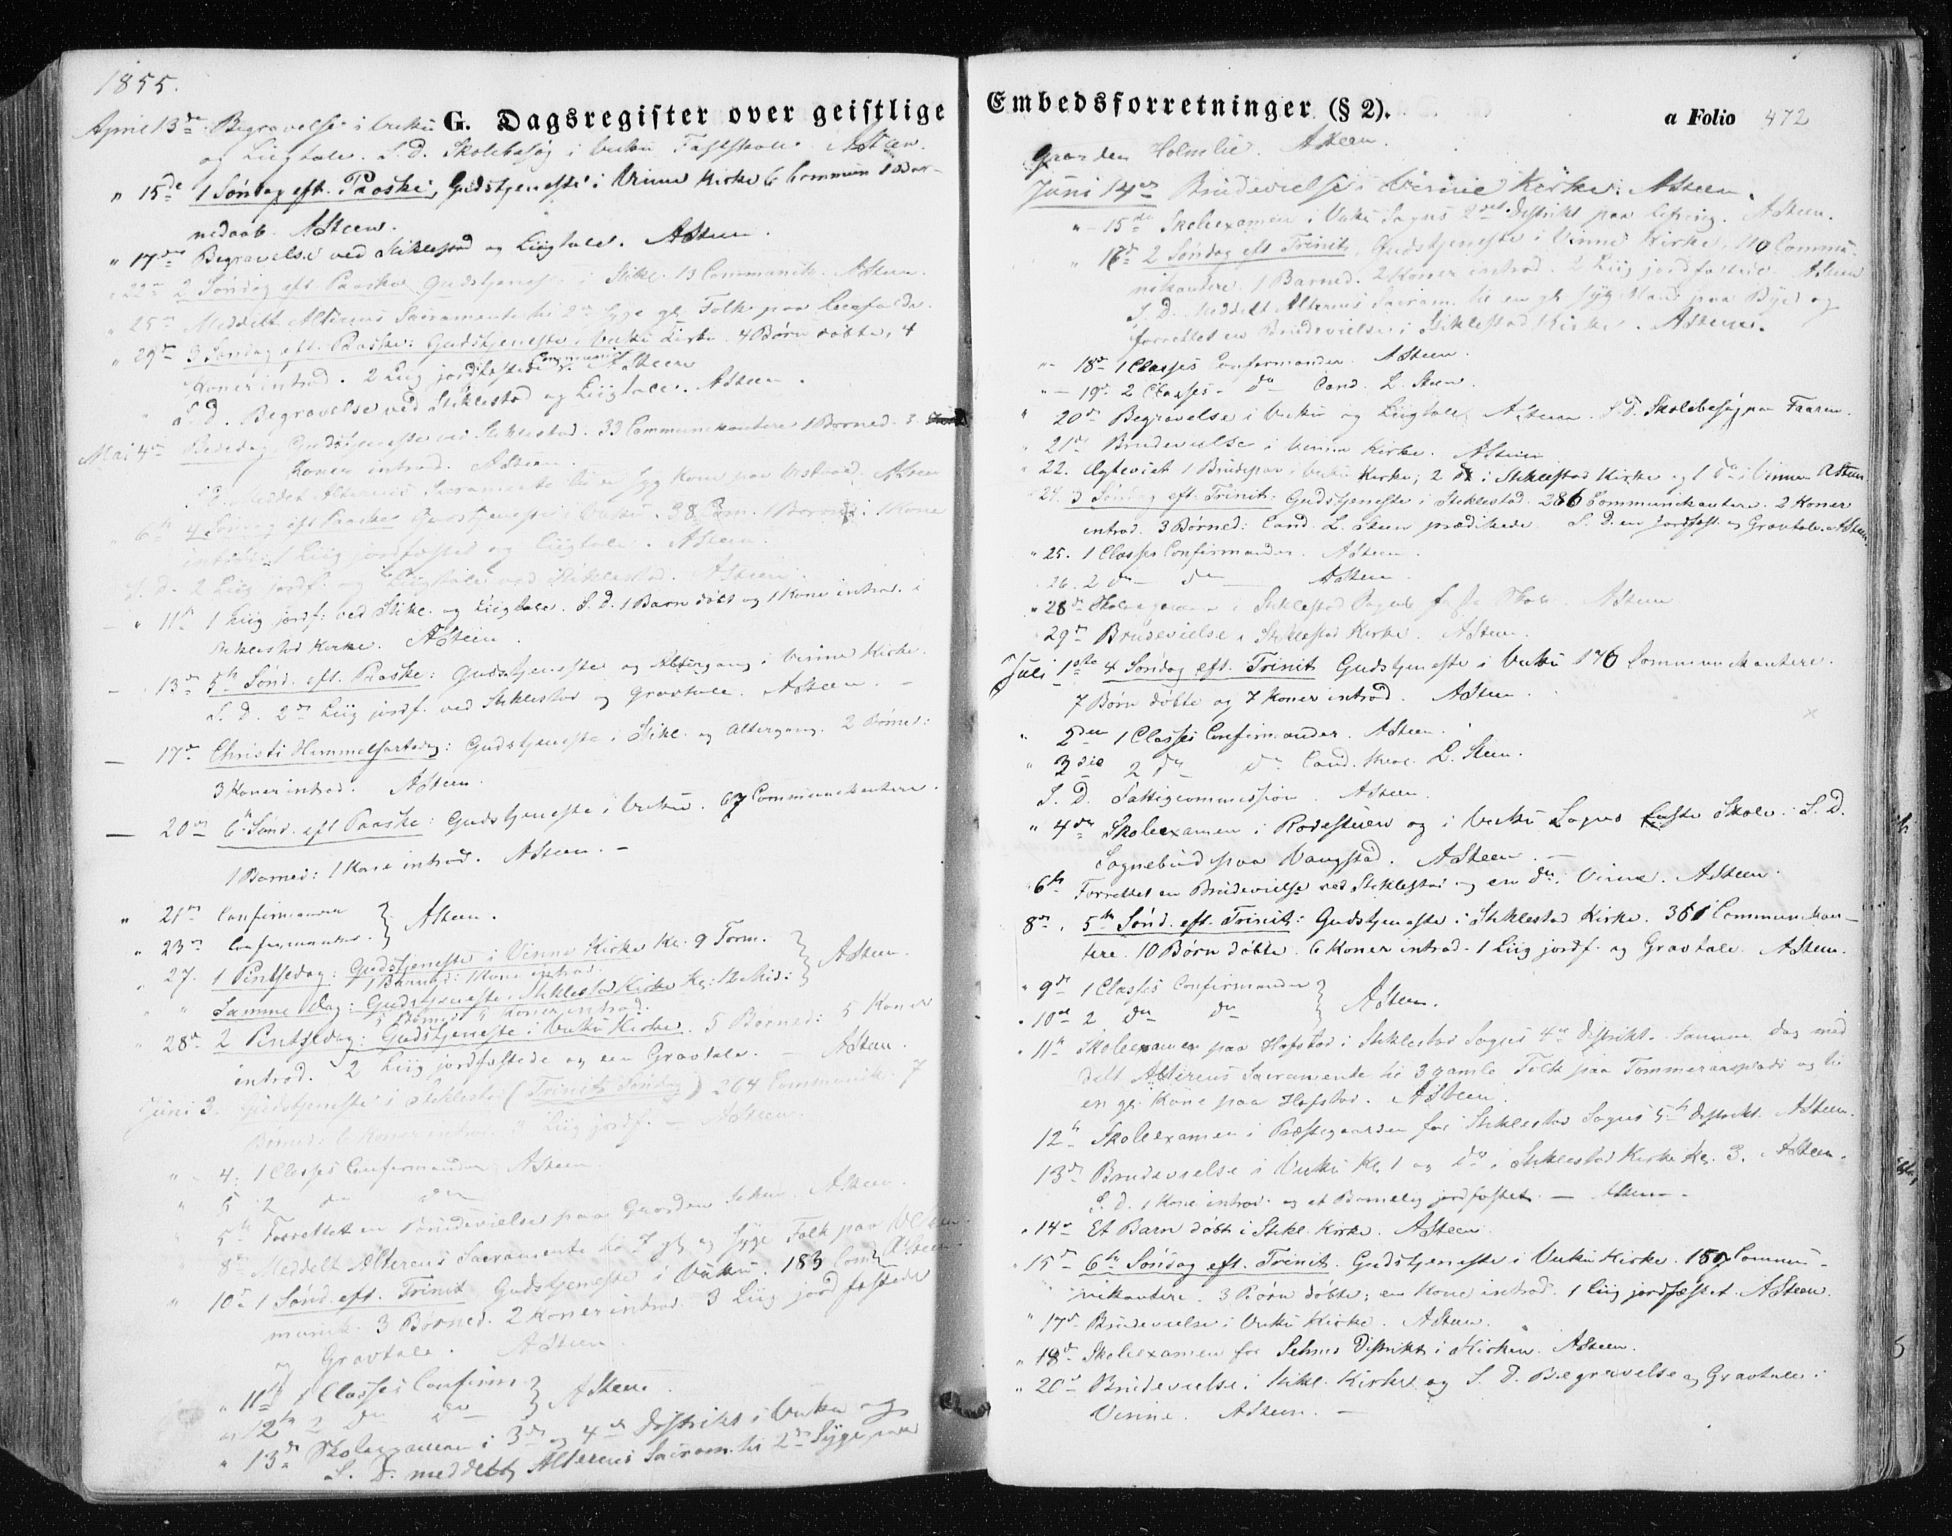 1855.
G. Dagsregister over geistlige Embedsforretninger (§ 2).
a Folio 472
April 13de Begravelse i Vuku
og Liigtale. S. D. Skolebesøg i Vuku Fastskole. ASteen.
" 15de 1 Søndag eft. Paaske, Gudstjeneste i Vinne Kirke 6 Commun 1 Bar-
nedaab. ASteen.
" 17de Begravelse ved Stiklestad og Liigtale. ASteen
" 22de 2 Søndag eft. Paaske Gudstjeneste i Stikl. 13 Communik. ASteen.
" 25de Meddelt Alterens Sacramente til 2de Syge gl. Folk paa
" 29de 3 Søndag eft. Paaske: Gudstjeneste i Vuku Kirke. 4 Børn døbte, 4
Koner introd. 2 Liig jordfæstede. ASteen
S. D. Begravelse ved Stiklestad og Liigtale. ASteen.
Mai 4de Bededag Gudstjeneste ved Stiklestad. 33 Communikantere 1 Barned. 3
Koner introd. ASteen.
S. D. Meddelt Alterens Sacramente til en Syg Kone paa ASteen
" 6te 4 Søndag eft Paaske Gudstjeneste i Vuku. 38 Com. 1 Barned: 1 Kone
introd: 1 Liig jordfæstet og Liigtale. ASteen.
S. D. 2 Liig jordf. og Liigtale ved Stiklestad. ASteen.
" 11te 1 Liig jordf. ved Stikl. og Liigtale. S. D. 1 Barn døbt og 1 Kone introd. i
Stiklestad Kirke. ASteen.
" 13de 5te Sønd. eft. Paaske: Gudstjeneste og Altergang i Vinne Kirke.
S. D. 2de Liig jordf. ved Stiklestad og Gravtale. ASteen. -
17de Christi Himmelfartsdag: Gudstjeneste i Stikl. og Altergang. 2 Børned:
3 Koner introd. ASteen.
20de 6te Sønd. eft Paaske: Gudstjeneste i Vuku. 67 Communikantere.
1 Barned: 1 Kone introd. ASteen. -
" 21de Confirmander
" 23de Confirmander } ASteen.
" 27. 1 Pintsedag: Gudstjeneste i Vinne Kirke Kl. 9 Form.
1 Barned: 1 Kone introd.
" " Samme Dag: Gudstjeneste i Stiklestad Kirke Kl: 12 Mid: } ASteen.
5 Børned 5 Koner introd.
" 28de 2 Pintsedag: Gudstjeneste i Vuku Kirke. 5 Børned: 5 Koner
introd. 2 Liig jordfæstede og een Gravtale. - ASteen.
Juni 3. Gudstjeneste i Stiklestad (Trinit. Søndag) 204 Communik. 7
Børned: 6 Koner introd. Liig jordf. - ASteen.
" 4. 1 Classes Confirmander ASteen.
" 5 2 do do
" 5te Forrettet en Brudevielse paa Gaarden ASteen.
8de Meddelt Alterens Sacramente til gl. og Syge Folk paa ASteen.
" 10de 1 Sønd. eft. Trinit Gudstjeneste i Vuku: 183 Com-
munik. 3 Børned. 2 Koner introd. 3 Liig jordfæstede
og Gravtale. ASteen
" 11te 1 Classes Confirm
" 12te 2 do do } ASteen.
" 13de Skoleexamen i 3de og 4de Distrikt i Vuku og
S. D. meddelt Alterens Sacram. til 2de Syge paa
Gaarden Holmlie. ASteen.
Juni 14de Brudevielse i Vinne Kirke. ASteen.
" 15de Skoleexamen i Vuku Sogns 2det Distrikt paa ASteen.
" 17de 2 Søndag eft Trinit. Gudstjeneste i Vinne Kirke, 110 Commu-
nikantere. 1 Barned. 2 Koner introd. 2 Liig jordfæstede ASteen
S. D. Meddelt Alterens Sacram. til en gl. Syg Mand paa og
forrettet en Brudevielse i Stiklestad Kirke. ASteen.
" 18de 1 Classes Confirmander ASteen.
" 19de 2 Classes - do Cand. L. Steen.
" 20de Begravelse i Vuku og Liigtale. ASteen. S. D. Skolebesøg paa Faaren.
" 21de Brudevielse i Vinne Kirke. ASteen
" 22. Ægteviet 1 Brudepar i Vuku Kirke; 2 do i Stiklestad Kirke og 1 do i Vinne ASteen
" 24. 3 Søndag eft. Trinit: Gudstjeneste i Stiklestad. 286 Communikantere. 2 Koner
introd. 3 Børned: Cand. L. Steen prædikede. S. D. en Jordfæst. og Gravtale. ASteen.
" 25. 1 Classes Confirmander. ASteen.
26. 2 do - do ASteen.
" 28de Skoleexamen i Stiklestad Sogns Skole. ASteen
29de Brudevielse i Stiklestad Kirke. ASteen.
Juli 1ste 4 Søndag eft. Trinit Gudstjeneste i Vuku 176 Communikantere.
7 Børn døbte og 7 Koner introd. ASteen.
" 2den 1 Classes Confirmander. ASteen.
" 3die 2 do do Cand. theol. L. Steen.
S. D. Fattigcommission. ASteen.
" 4de Skoleexamen i Rodestuen og i Vuku Sogns første Skole. S. D.
Sognebud paa Vangstad. ASteen. -
6te Forrettet en Brudevielse ved Stiklestad og en do i Vinne. ASteen.
8de 5te Sønd. eft. Trinit: Gudstjeneste i Stiklestad Kirke. 361 Communikan-
tere. 10 Børn døbte. 6 Koner introd. 1 Liig jordf. og Gravtale. ASteen.
" 9de 1 Classes Confirmander
" 10de 2 do do } ASteen.
" 11te Skoleexamen paa Hofstad i Stiklestad Sogns 4de Distrikt. Samme Dag med
delt Alterens Sacramente til 3 gamle Folk paa Tømmeraasplads og til
en gl. Kone paa Hofstad. ASteen.
12te Skoleexamen i Præstegaarden for Stiklestad Sogns 5te Distrikt. ASteen.
13de Brudevielse i Vuku Kl. 1 og do i Stiklestad Kirke Kl. 3. ASteen.
S. D. 1 Kone introd. og et Barnelig jordfæstet. - ASteen.
" 14de Et Barn døbt i Stikl. Kirke. ASteen.
15de 6te Søndag eft. Trinit. Gudstjeneste i Vuku Kirke. 150 Commu-
nikantere. 3 Børn døbte; en Kone introd. 1 Liig jordfæstet. ASteen.
" 17de Brudevielse i Vuku Kirke. ASteen.
" 18de Skoleexamen for Distrikt i Kirken. ASteen.
" 20de Brudevielse i Stikl. Kirke og S. D. Begravelse og Gravtale i
Vinne. ASteen. -